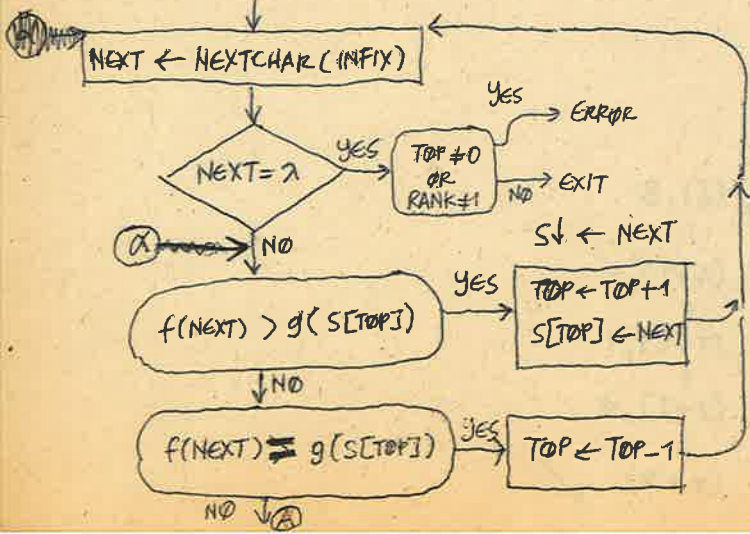 NEXT ← NEXTCHAR(INFIX)
NEXT = λ
YES
TØP ≠ 0
ØR
RANK ≠ 1
YES → ERRØR
NØ → EXIT
α
NØ
S↓ ← NEXT
f(NEXT) > g(S[TØP])
YES
TØP ← TØP+1
S[TØP] ← NEXT
NØ
f(NEXT) = g(S[TØP])
YES
TØP ← TØP-1
NØ
A